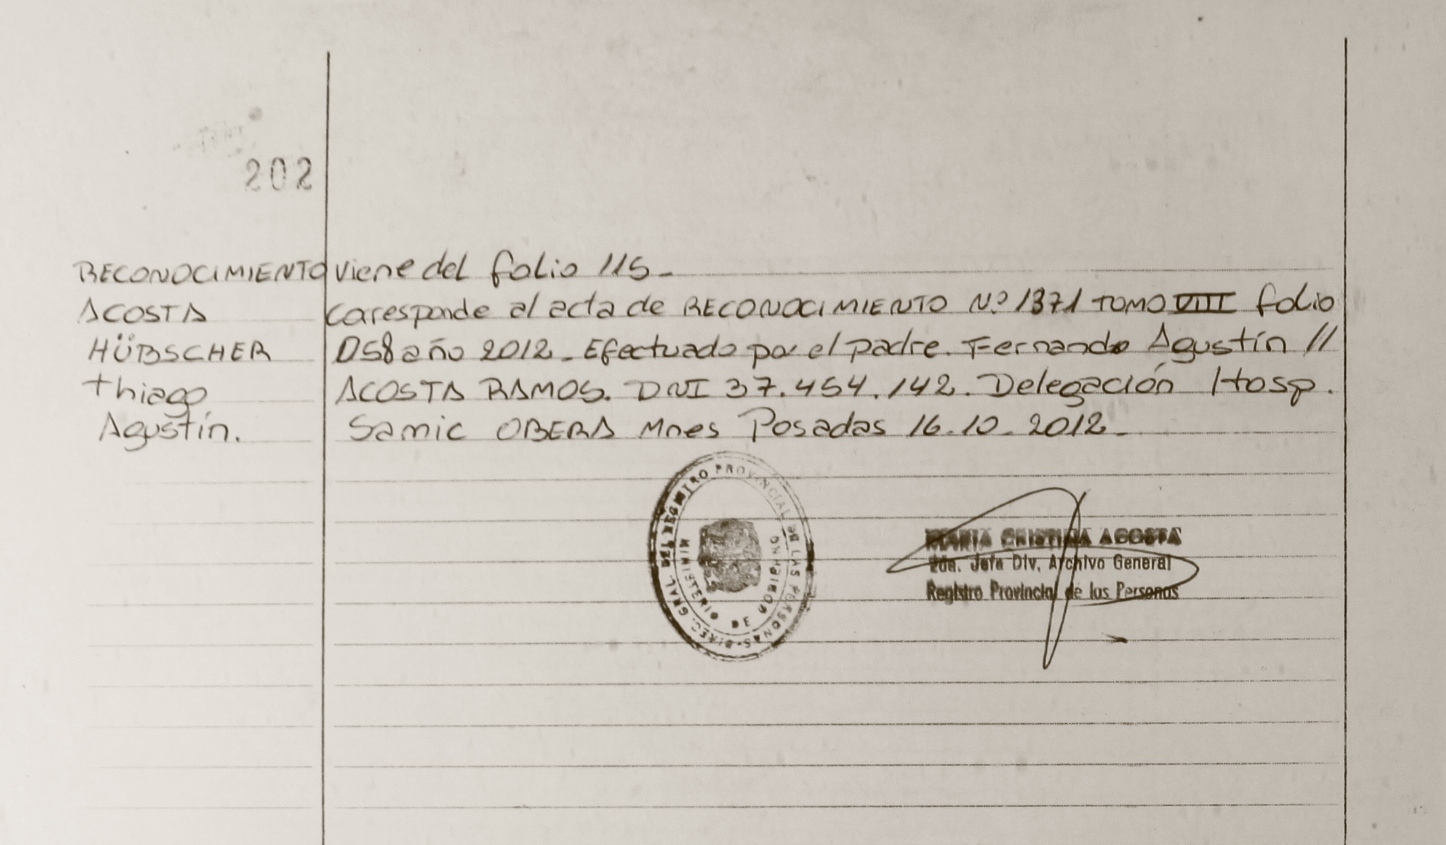 202
RECONOCIMIENTO viene del folio 115-
ACOSTA Coresponde al acta de RECONOCIMIENTO Nº 1371 TOMO VIII folio
HÜBSCHER 058 año 2012. Efectuado por el padre. Fernando Agustín //
Thiago ACOSTA RAMOS. DNI 37.454.142. Delegación Hosp.
Agustín. Samic OBERA Mnes Posadas 16.10.2012-
DIREC. GRAL. DEL REGISTRO PROVINCIAL DE LAS PERSONAS
MINISTERIO DE GOBIERNO
MARIA CRISTINA ACOSTA
Jefa Div. Archivo General
Registro Provincial de las Personas